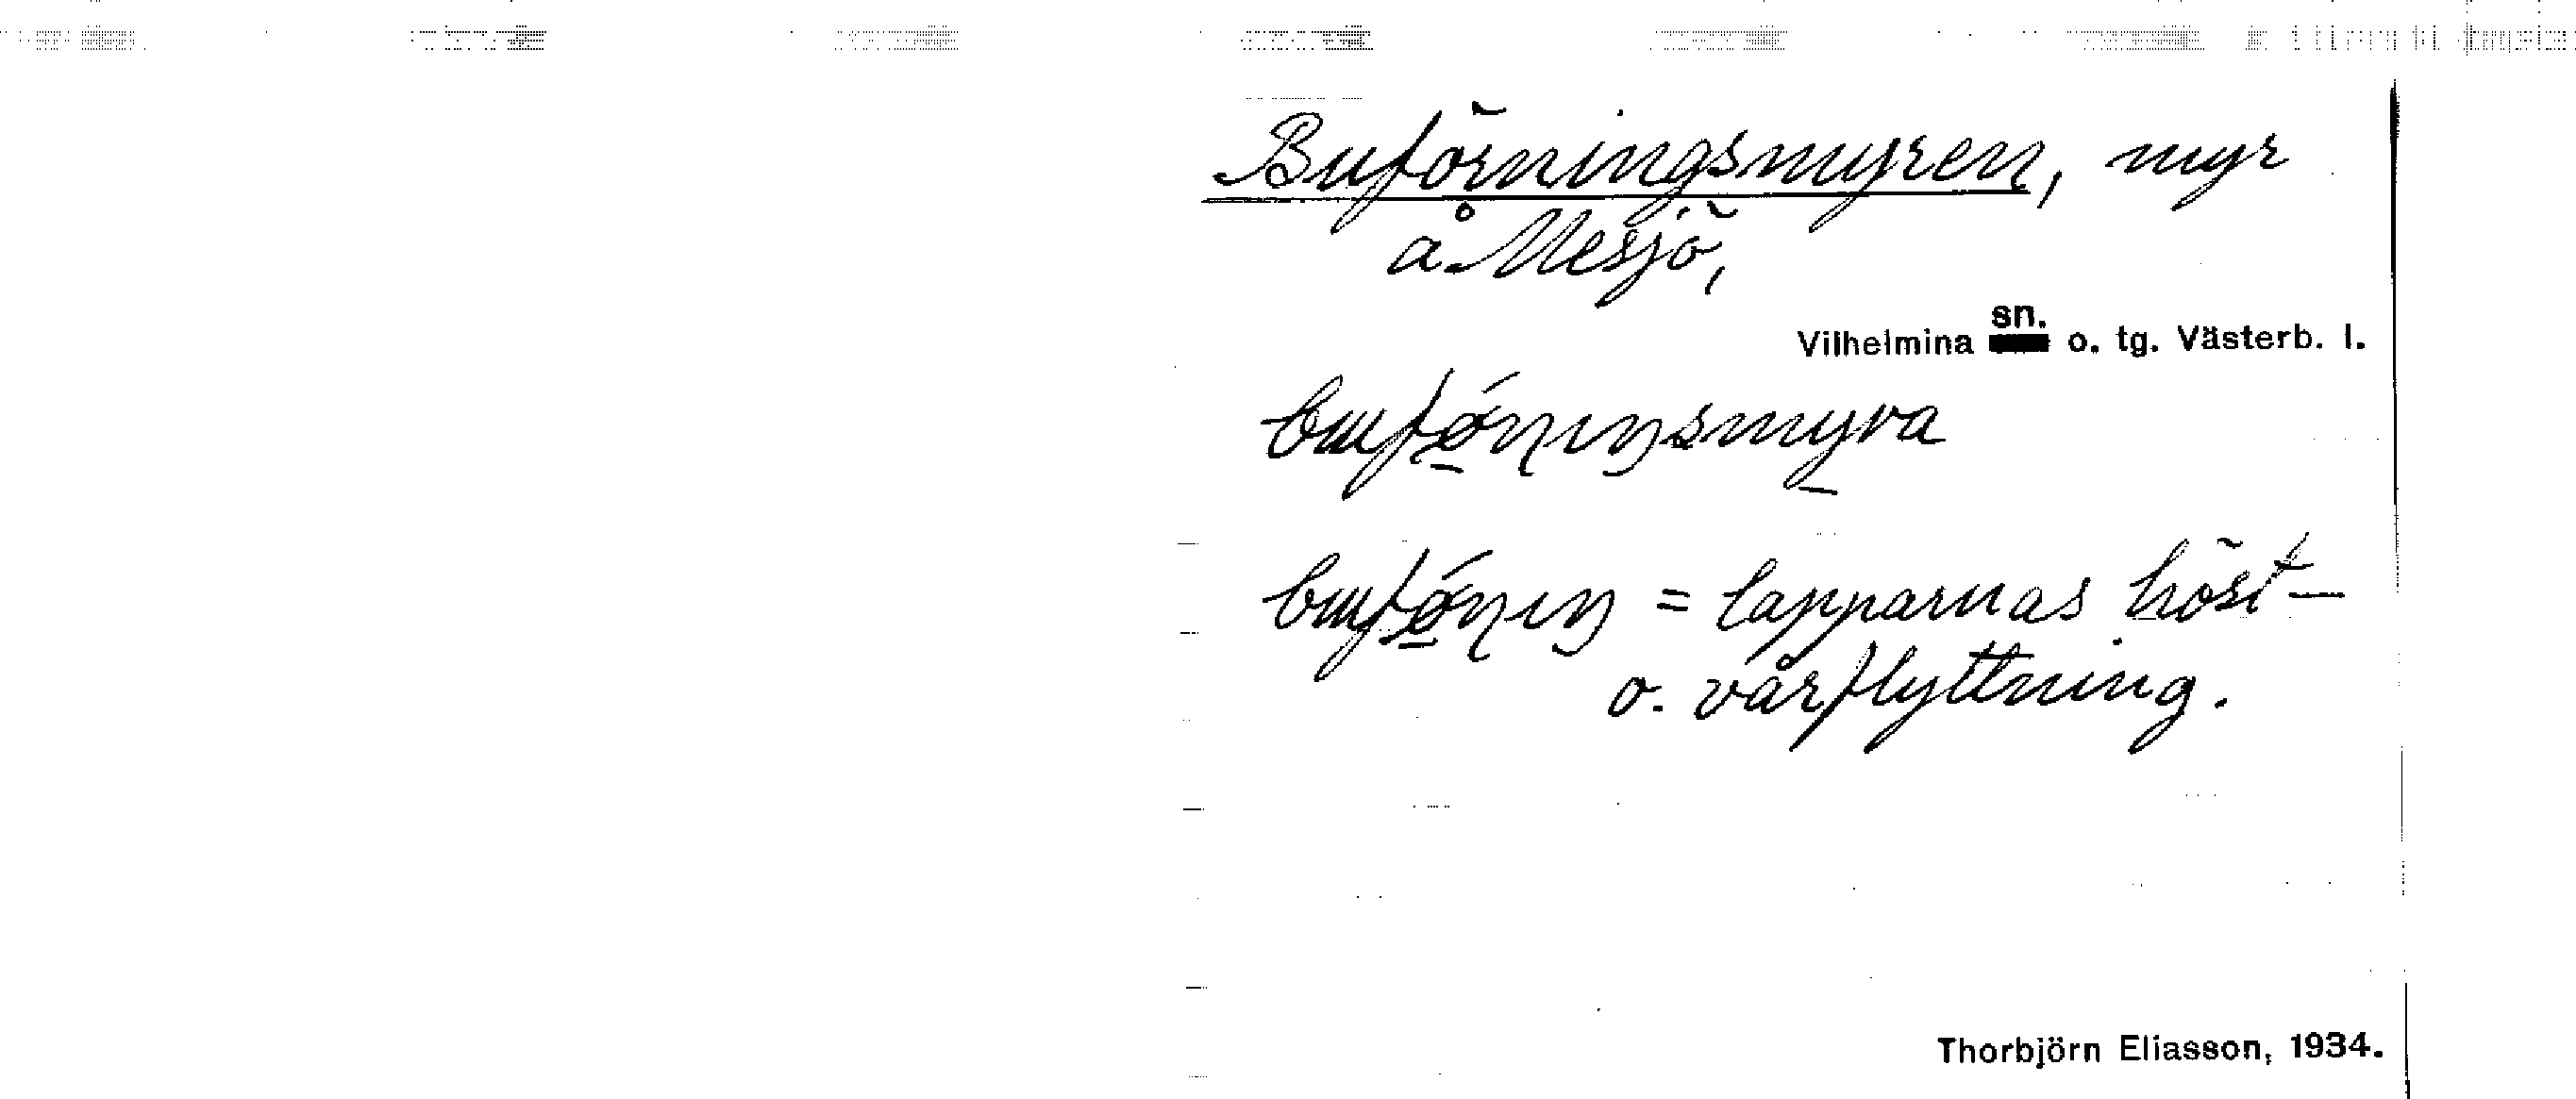 Buförningsmyren, myr
å Mesjö,
Vilhelmina sn. o. tg. Västerb. l.
bɯfǿ̠ɳıŋsmy̠ra
bɯfǿ̠ɳıŋ = lapparnas höst-
o. vårflyttning.
Thorbjörn Eliasson, 1934.